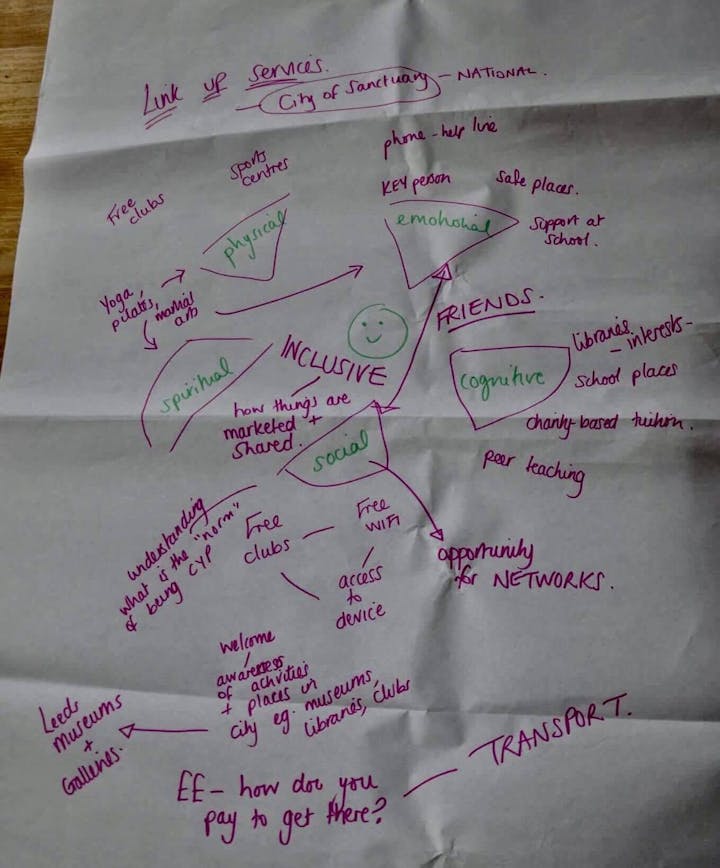 Link up services.
– City of Sanctuary – NATIONAL.
phone - help line
Sports
centres
Free
clubs
KEY person
Safe places.
physical
emotional
Support at
school.
Yoga,
pilates, martial
arts
FRIENDS.
INCLUSIVE
libraries
– interests –
spiritual
cognitive
school places
how things are
marketed +
shared.
charity-based tuition.
social
peer teaching
understanding
what is the "norm"
of being CYP
Free
clubs
Free
WIFI
opportunity
for NETWORKS.
access
to
device
Welcome
awareness
of activities
+ places in
city eg. museums,
libraries, clubs
Leeds
museums
+
Galleries.
TRANSPORT.
EE – how do you
pay to get there?